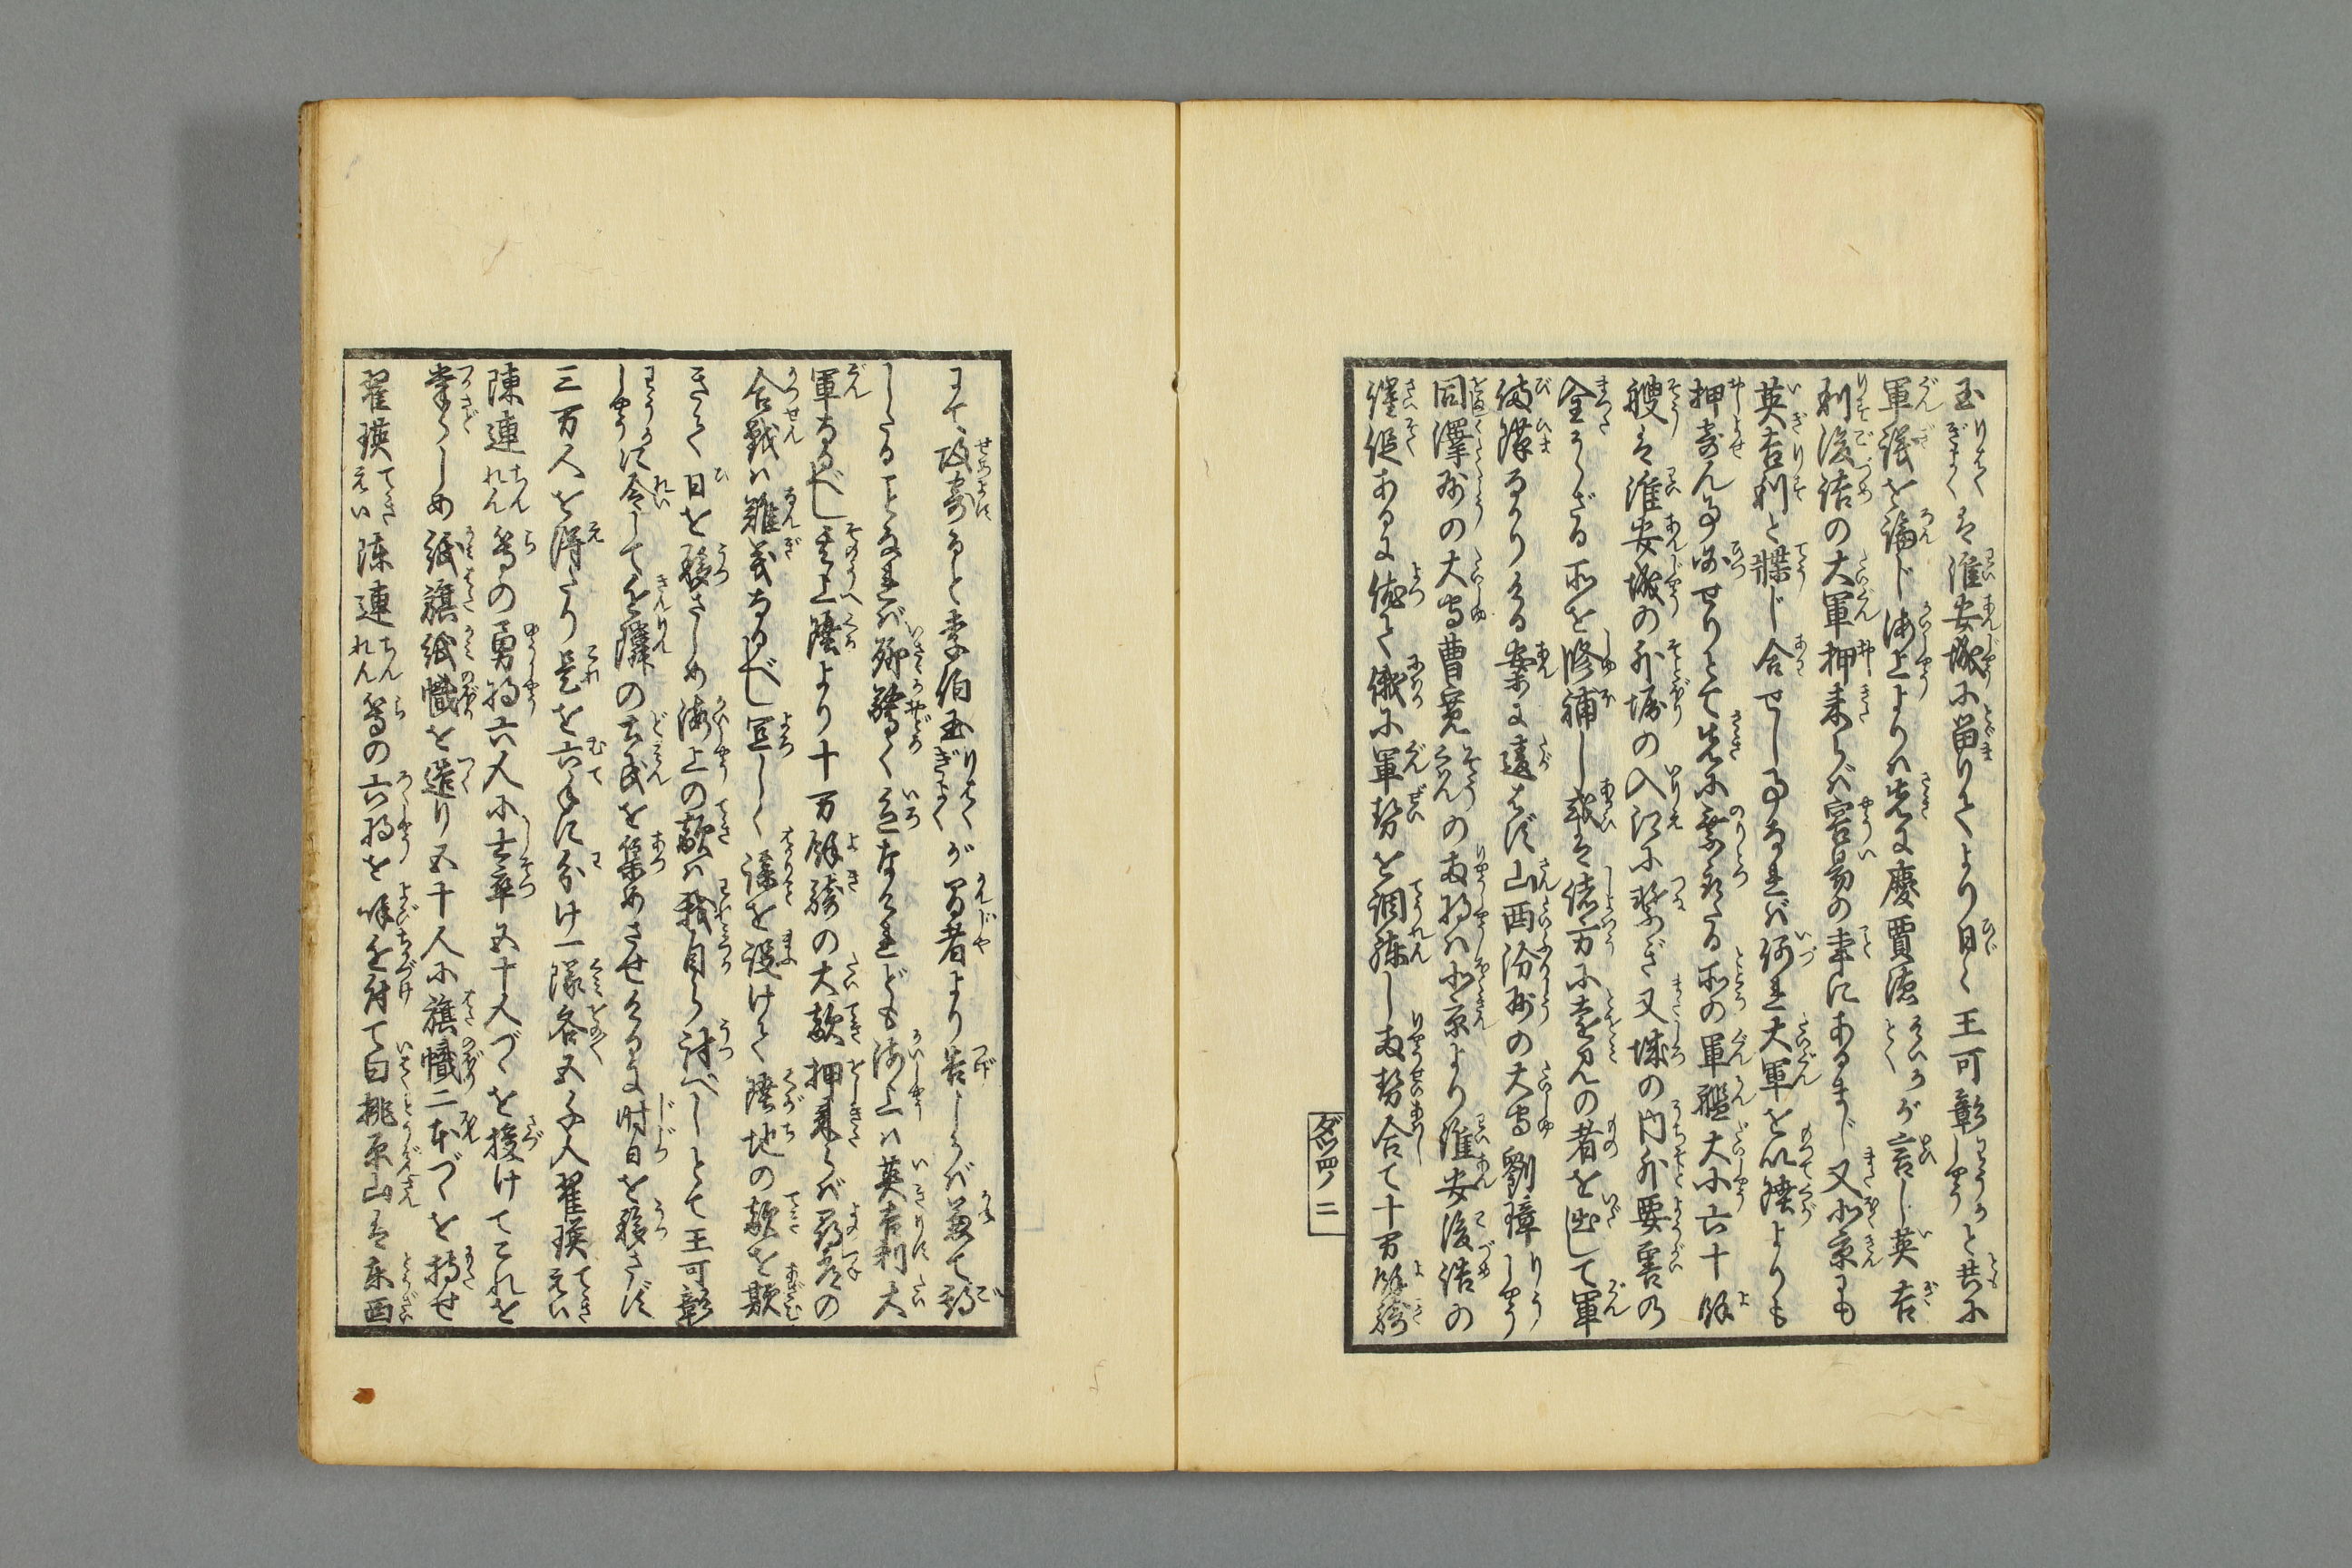 玉は淮安城に留りてより日く王可彰と共に
軍議を論じ海上よりハ先に慶賈徳が言し英吉
利後詰の大軍押来らバ容易の事にあるまじ又北京にも
英吉利と牒じ合せし事なれバ何れ大軍を以陸よりも
押寄ん事必せりとて先に乗取たる所の軍艦大小六十余
艘は淮安城の外堀の入江に繋ぎ又城の内外要害の
全からざる所を修補し或は諸方に遠見の者を出して軍
備隙なかりける案に違はず山西汾州の大守劉璋
同澤州の大守曹寛の両将ハ北京より淮安後詰の
催促あるに依て俄に軍勢を調練し両勢合て十万余騎
にて攻寄ると李伯玉が間者より告しかバ兼て期
したることなれバ聊驚く色なけれども海上ハ英吉利大
軍なるべし其上陸より十万余騎の大敵押来らバ尋常の
合戦ハ難義なるべし宜しく謀を設けて陸地の敵を欺
きて日を移さしめ海上の敵ハ我自ら討べしとて王可彰
に令して近隣の土民を集めさせけるに時日を移さず
三万人を得たり是を六手に分け一隊各五千人翟瑛
陳連等の勇将六人に士卒五十人づゝを授けてこれを
掌らしめ紙旗紙幟を造り五千人に旗幟二本づゝを持せ
翟瑛陳連等の六将を呼近付て曰桃原山は東西
ダツ四ノ 二